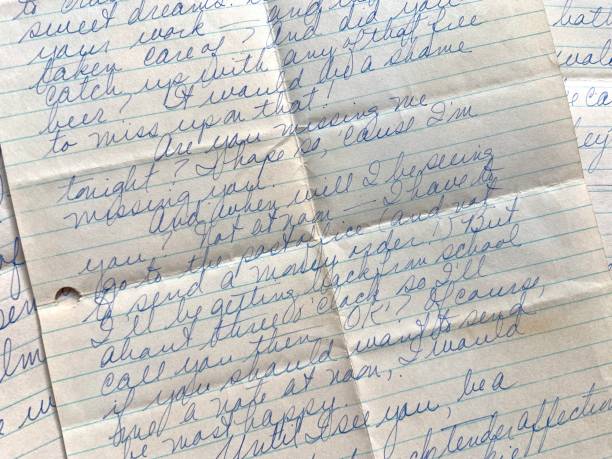 sweet dreams. and
your work
taken care of? And did you
catch up with any of that free
beer? It would be a shame
to miss up on that!
Are you missing me
tonight? I hope so, 'cause I'm
missing you.
And when will I be seeing
you? Not at noon — I have to
go to the post office (and not
to send a money order!) But
I'll be getting back from school
about three o'clock so I'll
call you then. O.K.? Of course,
if you should want to send
me a note at noon, I would
be most happy.
Until I see you, be a
tender affection